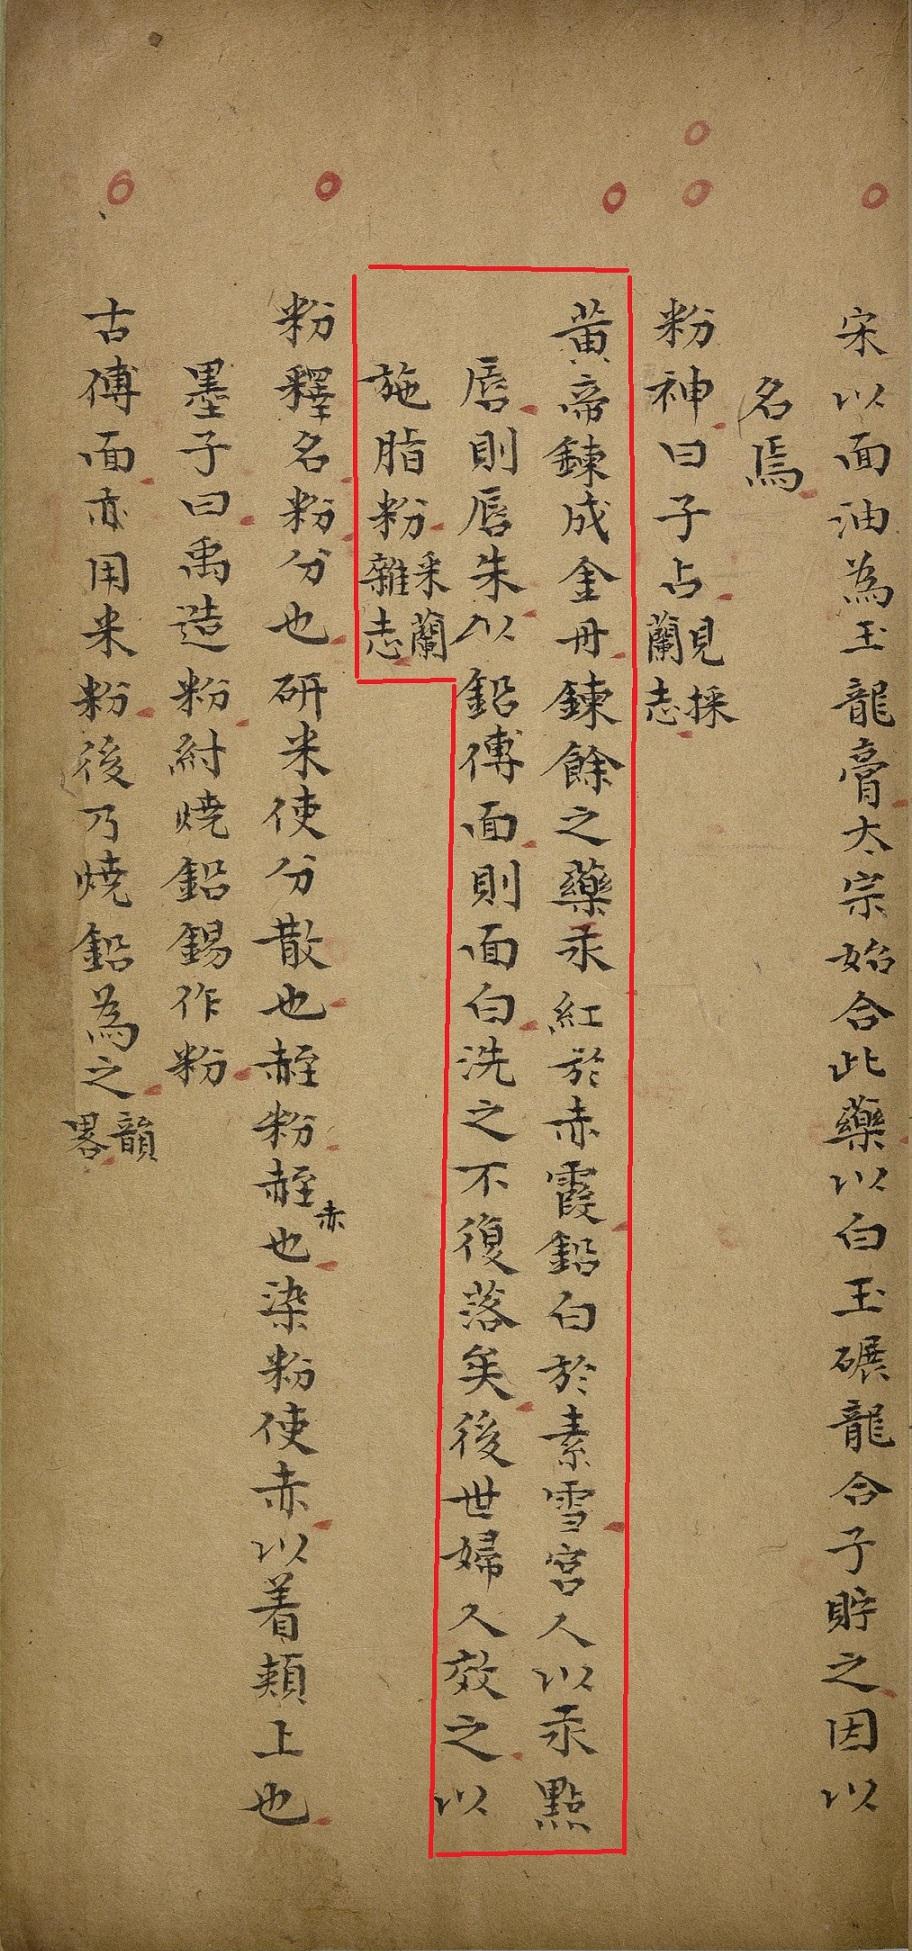 宋以面油為玉龍膏太宗始合此藥以白玉碾龍合子貯之因以
名焉
粉神曰子占見採蘭志
黃帝鍊成金丹鍊餘之藥汞紅於赤霞鉛白於素雪宮人以汞點
唇則唇朱以鉛傅面則面白洗之不復落矣後世婦人效之以
施脂粉采蘭雜志
粉釋名粉分也研米使分散也䞓粉䞓赤也染粉使赤以着頰上也
墨子曰禹造粉紂燒鉛錫作粉
古傅面亦用米粉後乃燒鉛為之韻畧